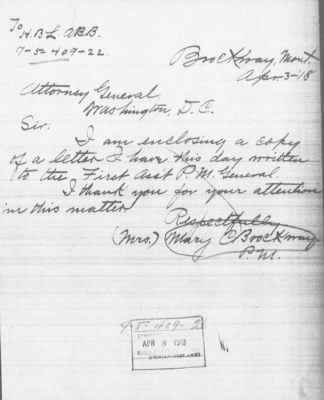 To H.B.L. A.B.B.
9-5-409-22
Brockway, Mont.
Apr-3-18
Attorney General
Washington, D.C.
Sir:
I am enclosing a copy
of a letter I have this day written
to the First Asst P.M. General.
I thank you for your attention
in this matter
Respectfully
(Mrs.) Mary C Brockway
P.M.
9-5-409-2
APR 8 1918